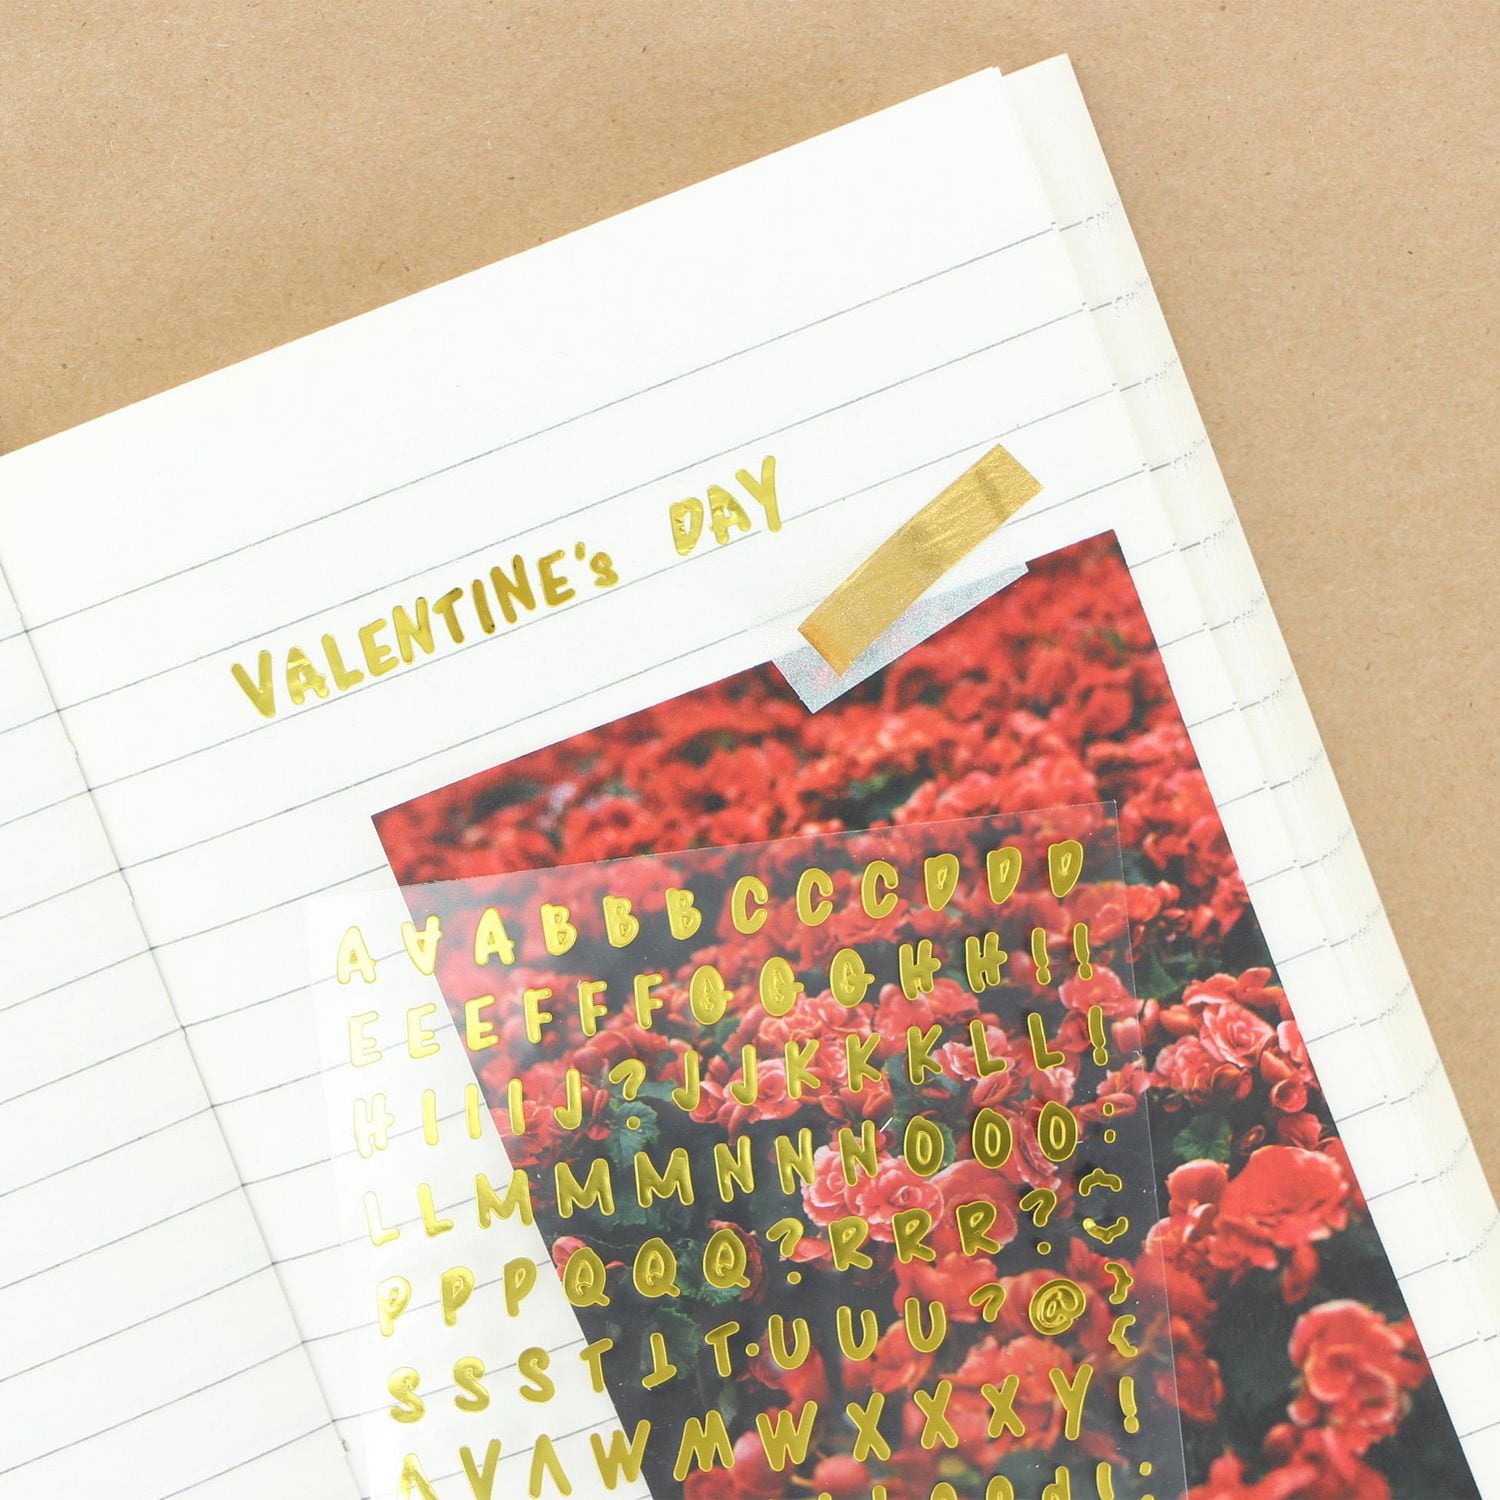 VALENTINE's DAY
A A A B B B C C C D D D
E E E F F F G G G H H ! !
H I I I J ? J J K K K L L !
L L M M M N N N O O O :
P P P Q Q Q ? R R R ?
S S S T T T . U U U ? @ } {
V V V W M W X X X Y !